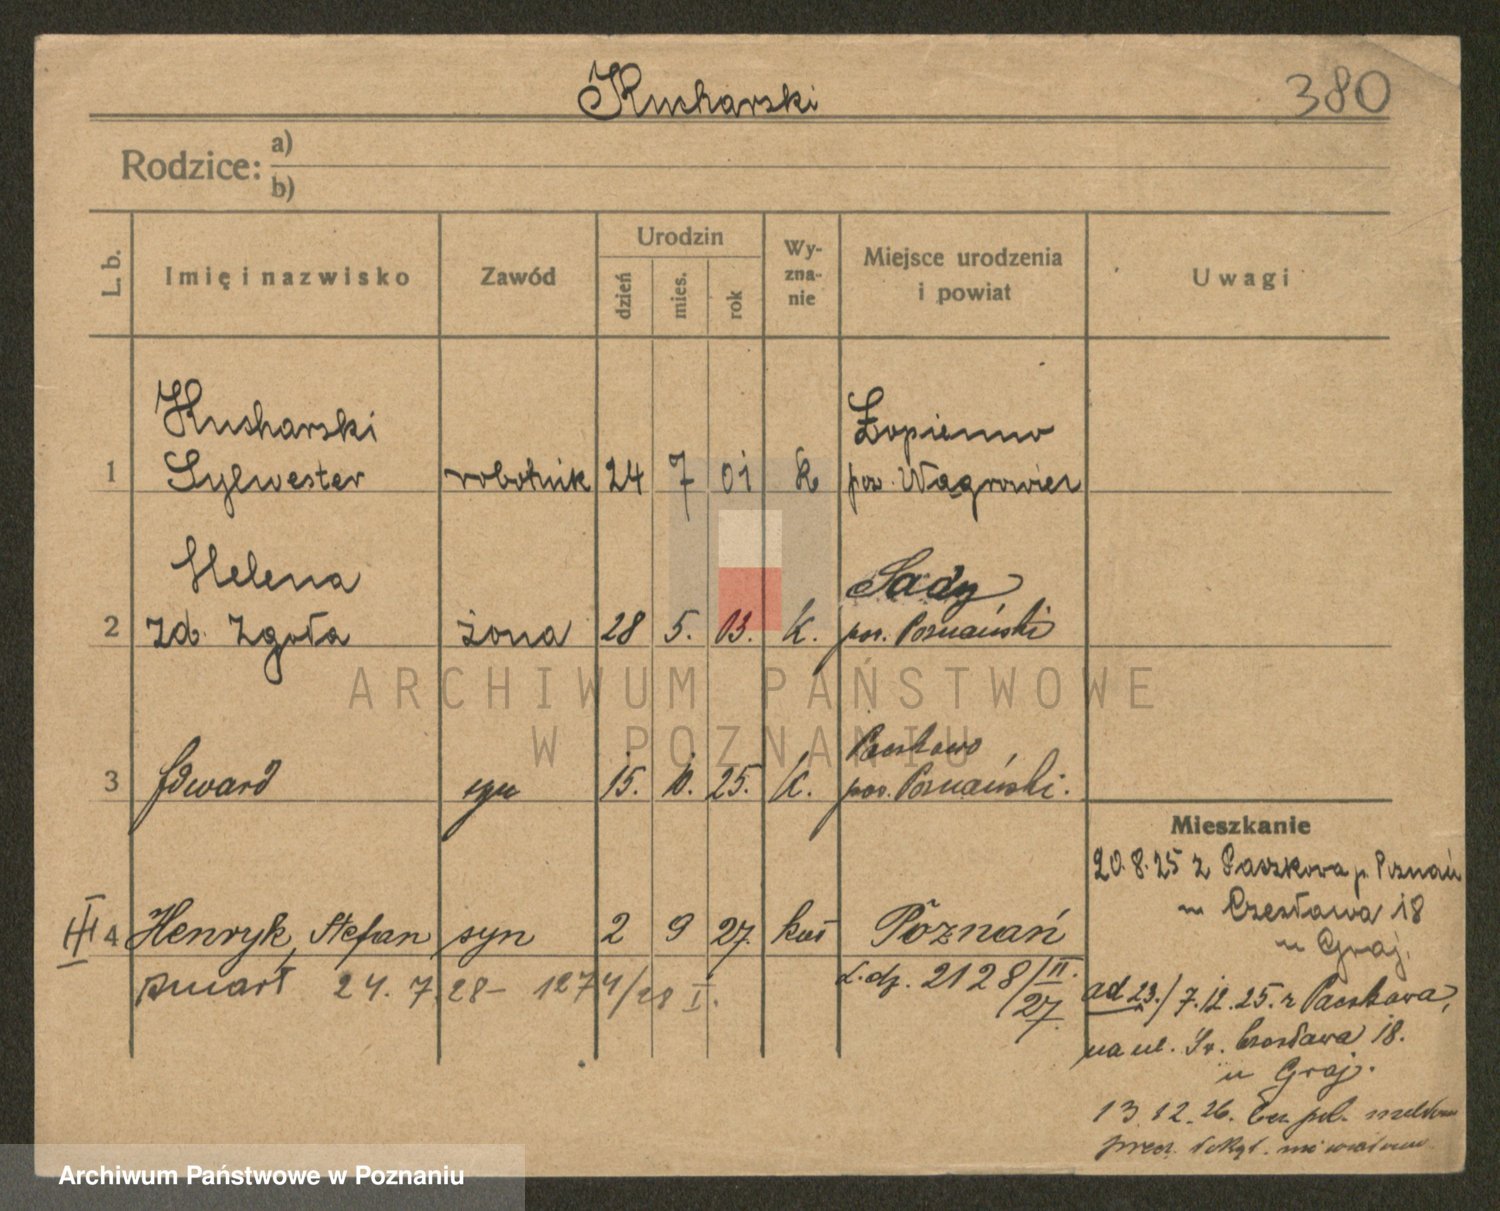 Kucharski
380
Rodzice: a)
b)
L. b.
Imię i nazwisko
Zawód
Urodzin
dzień
mies.
rok
Wy-
zna-
nie
Miejsce urodzenia
i powiat
Uwagi
Kucharski
Łopienno
1 Sylwester robotnik 24 7 01 k pow. Wągrowiec
Helena
Sady
2 zd. Zgoła żona 28 5. 03. k. pow. Poznański
Paczkowo
3 Edward syn 15. 10. 25. k. pow. Poznański.
Mieszkanie
20.8.25 z Paczkowa p. Poznań
Czesława 18
u Graj.
III 4 Henryk, Stefan syn 2 9 27. kat Poznań
zmarł 24.7.28 - 1274/28 I.
L.dz. 2128/II.
/27.
ad 23./7.12.25. z Paczkowa,
na ul. Św. Czesława 18.
u Graj.
13.12.26.
ARCHIWUM PAŃSTWOWE
W POZNANIU
Archiwum Państwowe w Poznaniu